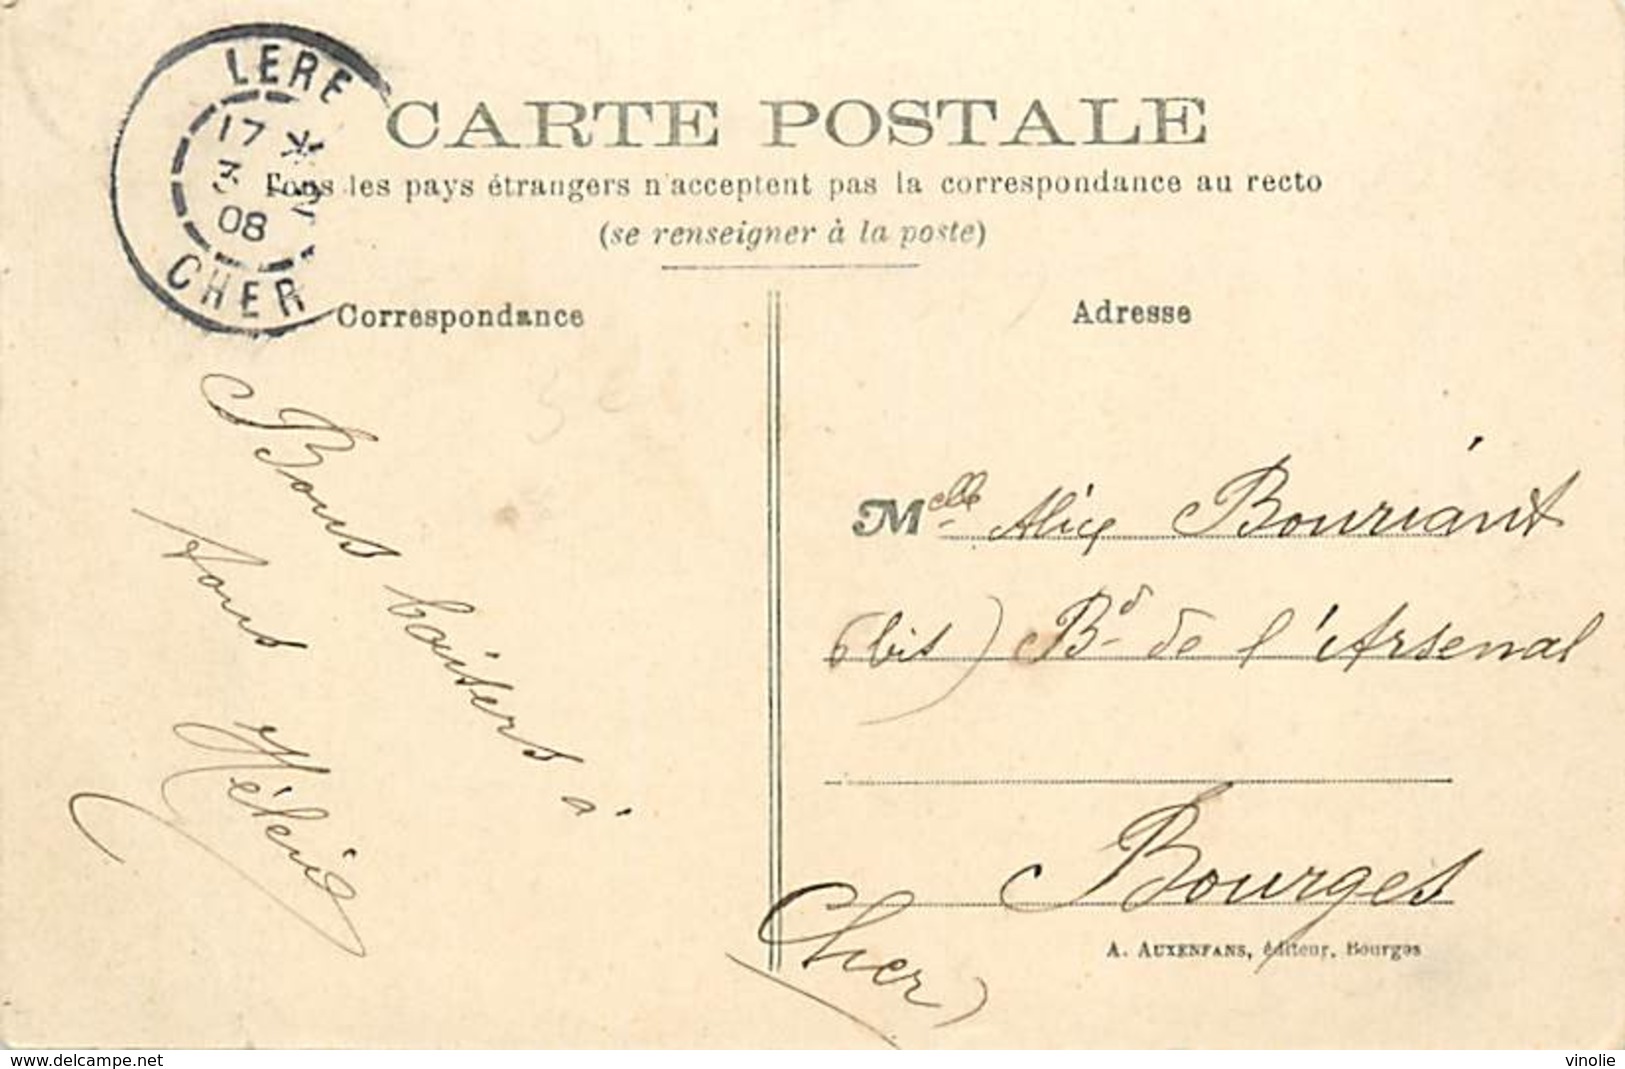 LERE
17 *
3
08
CHER
CARTE POSTALE
Tous les pays étrangers n'acceptent pas la correspondance au recto
(se renseigner à la poste)
Correspondance
Bons baisers à
tous
Adresse
Melle Alice Bouriant
6 bis) Bd de l'Arsenal
Bourges
(Cher)
A. AUXENFANS, éditeur, Bourges
www.delcampe.net
vinolie